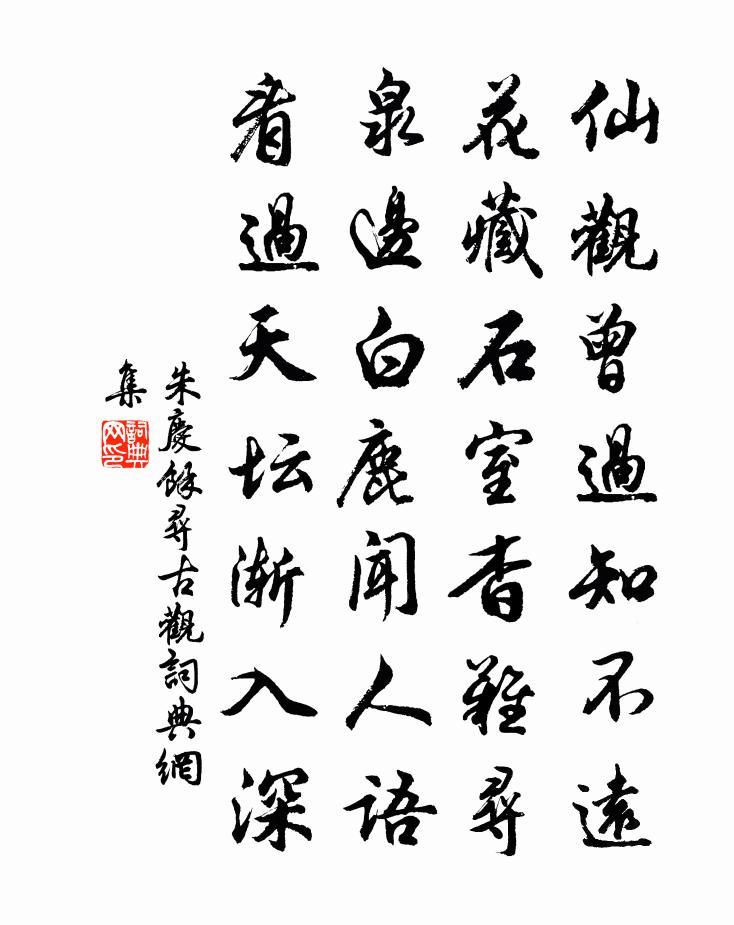 仙觀曾過知不遠
花藏石室杳難尋
泉邊白鹿聞人語
看過天坛漸入深
朱慶餘尋古觀詞典網
集
詞典网印